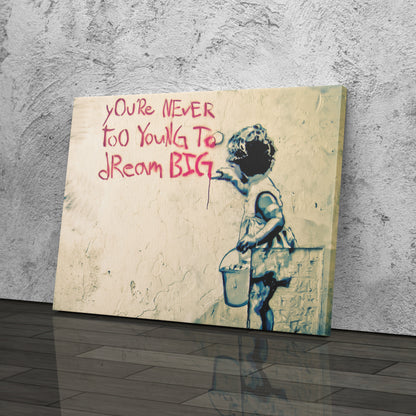 yOuRe NEVER
too YounG To
dReam BIG